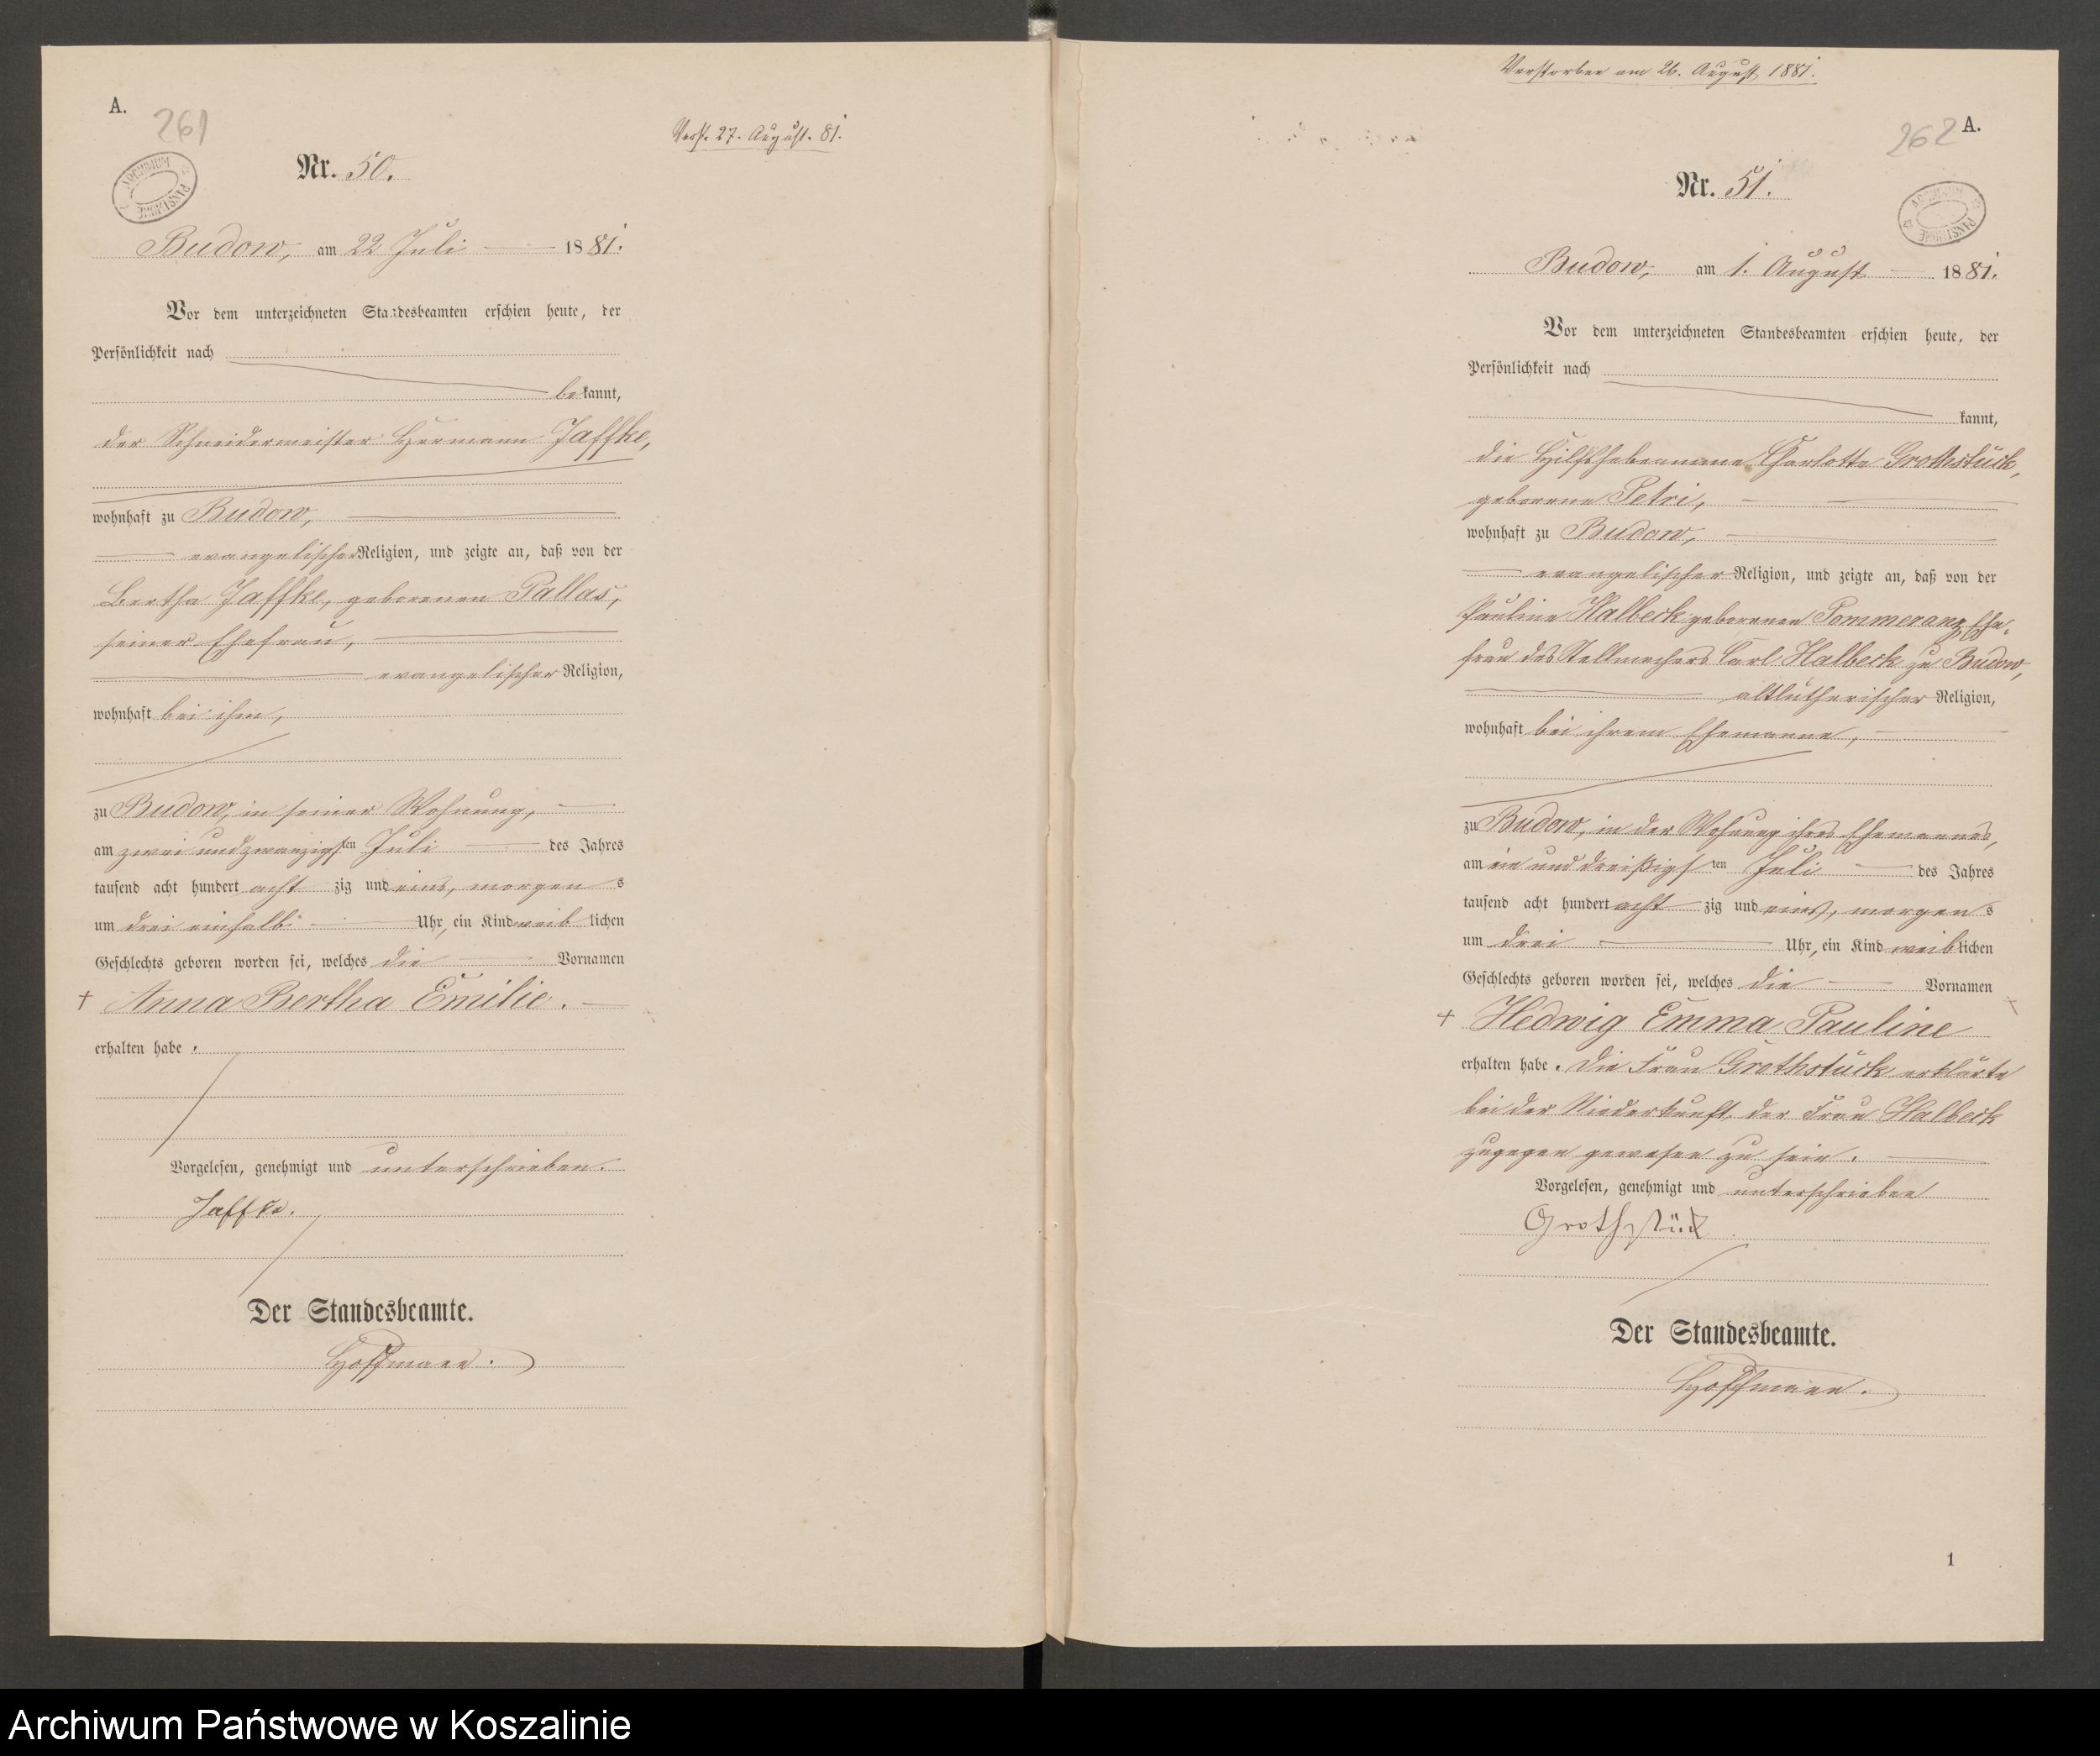 A.
261
Verst. 27. August. 81.
ARCHIWUM PAŃSTWOWE
Nr. 50.
Budow, am 22 Juli 1881.
Vor dem unterzeichneten Standesbeamten erschien heute, der
Persönlichkeit nach
bekannt,
der Schneidermeister Hermann Jaffke,
wohnhaft zu Budow,
evangelischer Religion, und zeigte an, daß von der
Bertha Jaffke, geborenen Pallas,
seiner Ehefrau,
evangelischer Religion,
wohnhaft bei ihm,
zu Budow, in seiner Wohnung,
am zwei und zwanzigsten Juli des Jahres
tausend acht hundert achtzig und eins, morgens
um drei einhalb Uhr, ein Kind weiblichen
Geschlechts geboren worden sei, welches die Vornamen
+ Anna Bertha Emilie.
erhalten habe.
Vorgelesen, genehmigt und unterschrieben.
Jaffke.
Der Standesbeamte.
Hoffmann.
Verstorben am 26. August 1881.
262 A.
ARCHIWUM PAŃSTWOWE
Nr. 51.
Budow, am 1. August 1881.
Vor dem unterzeichneten Standesbeamten erschien heute, der
Persönlichkeit nach
kannt,
die Hilfshebamme Charlotte Grothstück,
geborene Petri,
wohnhaft zu Budow,
evangelischer Religion, und zeigte an, daß von der
Pauline Halbeck geborenen Pommerang, Ehe-
frau des Stellmachers Carl Halbeck zu Budow,
altlutherischer Religion,
wohnhaft bei ihrem Ehemanne,
zu Budow, in der Wohnung ihres Ehemannes,
am ein und dreißigsten Juli des Jahres
tausend acht hundert achtzig und eins, morgens
um drei Uhr, ein Kind weiblichen
Geschlechts geboren worden sei, welches die Vornamen
+ Hedwig Emma Pauline
erhalten habe. Die Frau Grothstück erklärte
bei der Niederkunft der Frau Halbeck
zugegen gewesen zu sein.
Vorgelesen, genehmigt und unterschrieben
Grothstück
Der Standesbeamte.
Hoffmann.
1
Archiwum Państwowe w Koszalinie